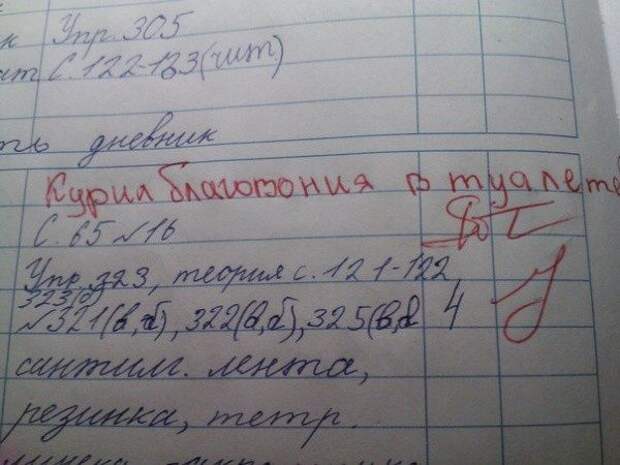 к Упр. 305
ат С. 122-123 (чит.)
ть дневник
Курил благовония в туалете
С. 65 №16
Упр. 323, теория с. 121-122
323(б)
№321(в,б), 322(в,б), 325(в, 4
сантим. лента,
резинка, тетр.